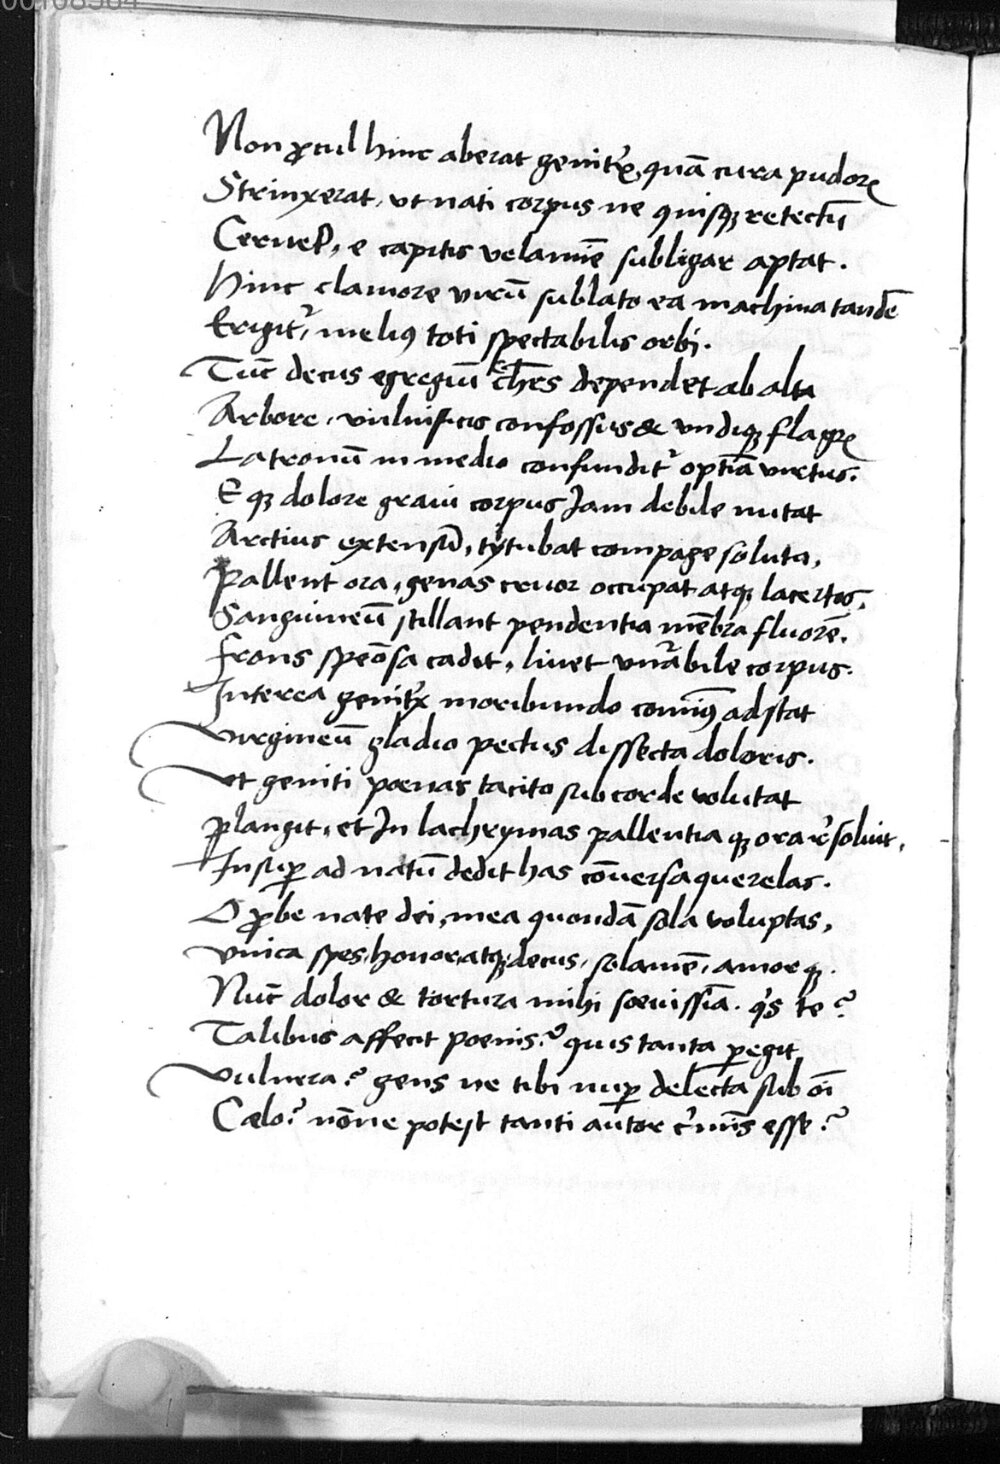 00108564
Non ꝓcul hinc aberat genitrͯ, quā cura pudorꝭ
Strinxerat, vt nati corpus ne quisqꝫ retectū
Cerneꝛ, e capitis velamīe subligar aptat.
Hinc clamore virū sublato ea machina tandē
Erigitᷣ, melius toti spectabilis orbi.
Tūc decus egregiū chr̄s dependet ab alta
Arbore, vulnificis confossus & vndiqꝫ flagrꝭ
Latronū in medio confunditᷣ optīa virtus.
Eqꝫ dolore graui corpus Jam debile nutat
Arctius extensū, tytubat compage soluta,
Pallent ora, genas cruor occupat atqꝫ lacertos,
Sanguineū stillant pendentia mēbra fluorē.
Frons speōsa cadit, liuet vnᷓabile corpus.
Interea genitrͯ moribundo comin⁹ adstat
Virgineū gladio pectus dissecta doloris.
Vt geniti poenas tacito sub corde volutat
Plangit, et In lachrymas pallentia qꝫ ora rͤsoluit,
Insuꝑ ad natū dedit has cōuersa querelas.
O ꝓbe nate dei, mea quondā sola voluptas,
Vnica spes, honor, atqꝫ decus, solamē, amorqꝫ.
Nūc dolor & tortura mihi sœuissīa. qͥs te?
Talibus affecit poenis? quis tanta ꝑegit
Vulnera? gens ne tibi nuꝑ delecta sub oī
Cælo? nōne potest tanti autor cͥmīs esse?